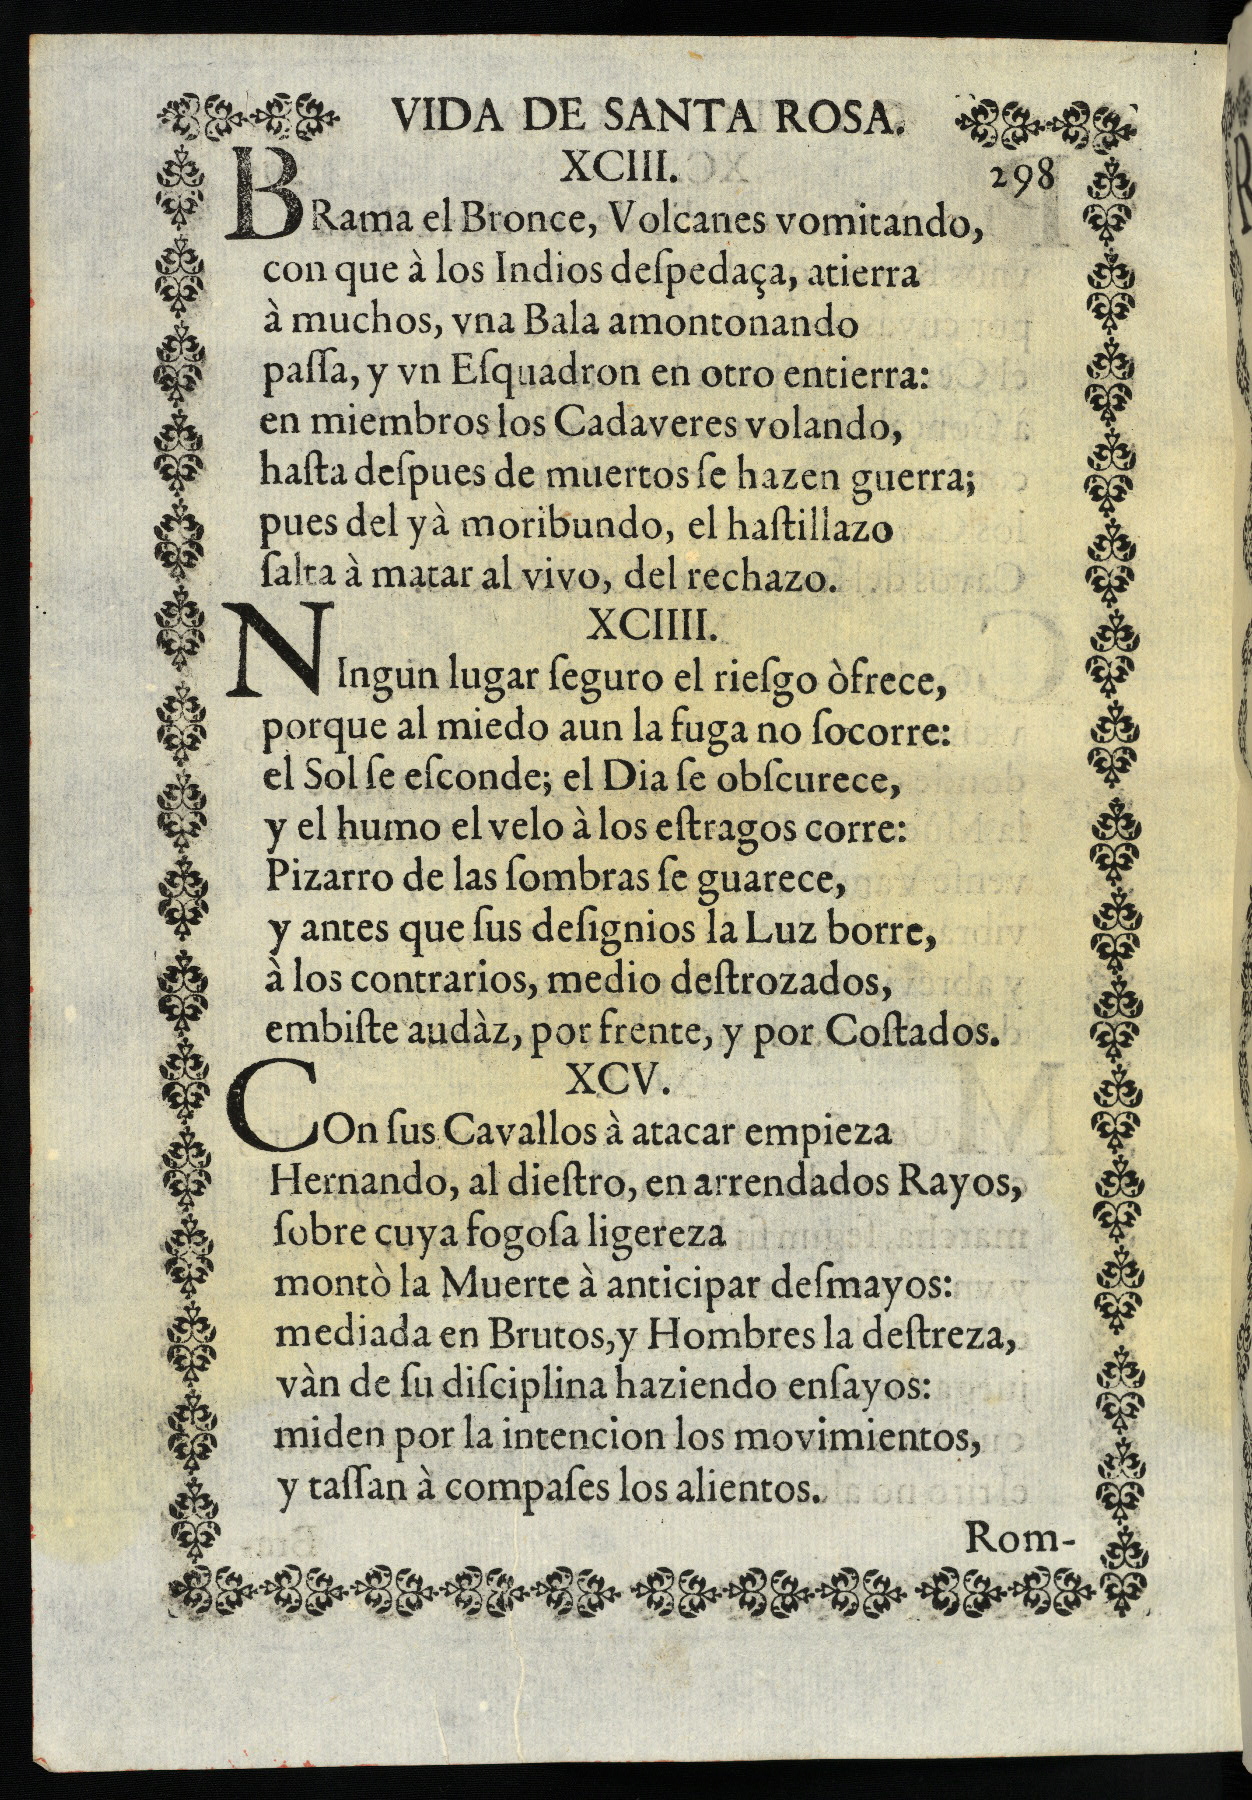 VIDA DE SANTA ROSA.
XCIII. 298
BRama el Bronce, Volcanes vomitando,
con que à los Indios deſpedaça, atierra
à muchos, vna Bala amontonando
paſſa, y vn Eſquadron en otro entierra:
en miembros los Cadaveres volando,
haſta deſpues de muertos ſe hazen guerra;
pues del yà moribundo, el haſtillazo
ſalta à matar al vivo, del rechazo.
XCIIII.
NIngun lugar ſeguro el rieſgo òfrece,
porque al miedo aun la fuga no ſocorre:
el Sol ſe eſconde; el Dia ſe obſcurece,
y el humo el velo à los eſtragos corre:
Pizarro de las ſombras ſe guarece,
y antes que ſus deſignios la Luz borre,
à los contrarios, medio deſtrozados,
embiſte audàz, por frente, y por Coſtados.
XCV.
COn ſus Cavallos à atacar empieza
Hernando, al dieſtro, en arrendados Rayos,
ſobre cuya fogoſa ligereza
montò la Muerte à anticipar deſmayos:
mediada en Brutos,y Hombres la deſtreza,
vàn de ſu diſciplina haziendo enſayos:
miden por la intencion los movimientos,
y taſſan à compaſes los alientos.
Rom-